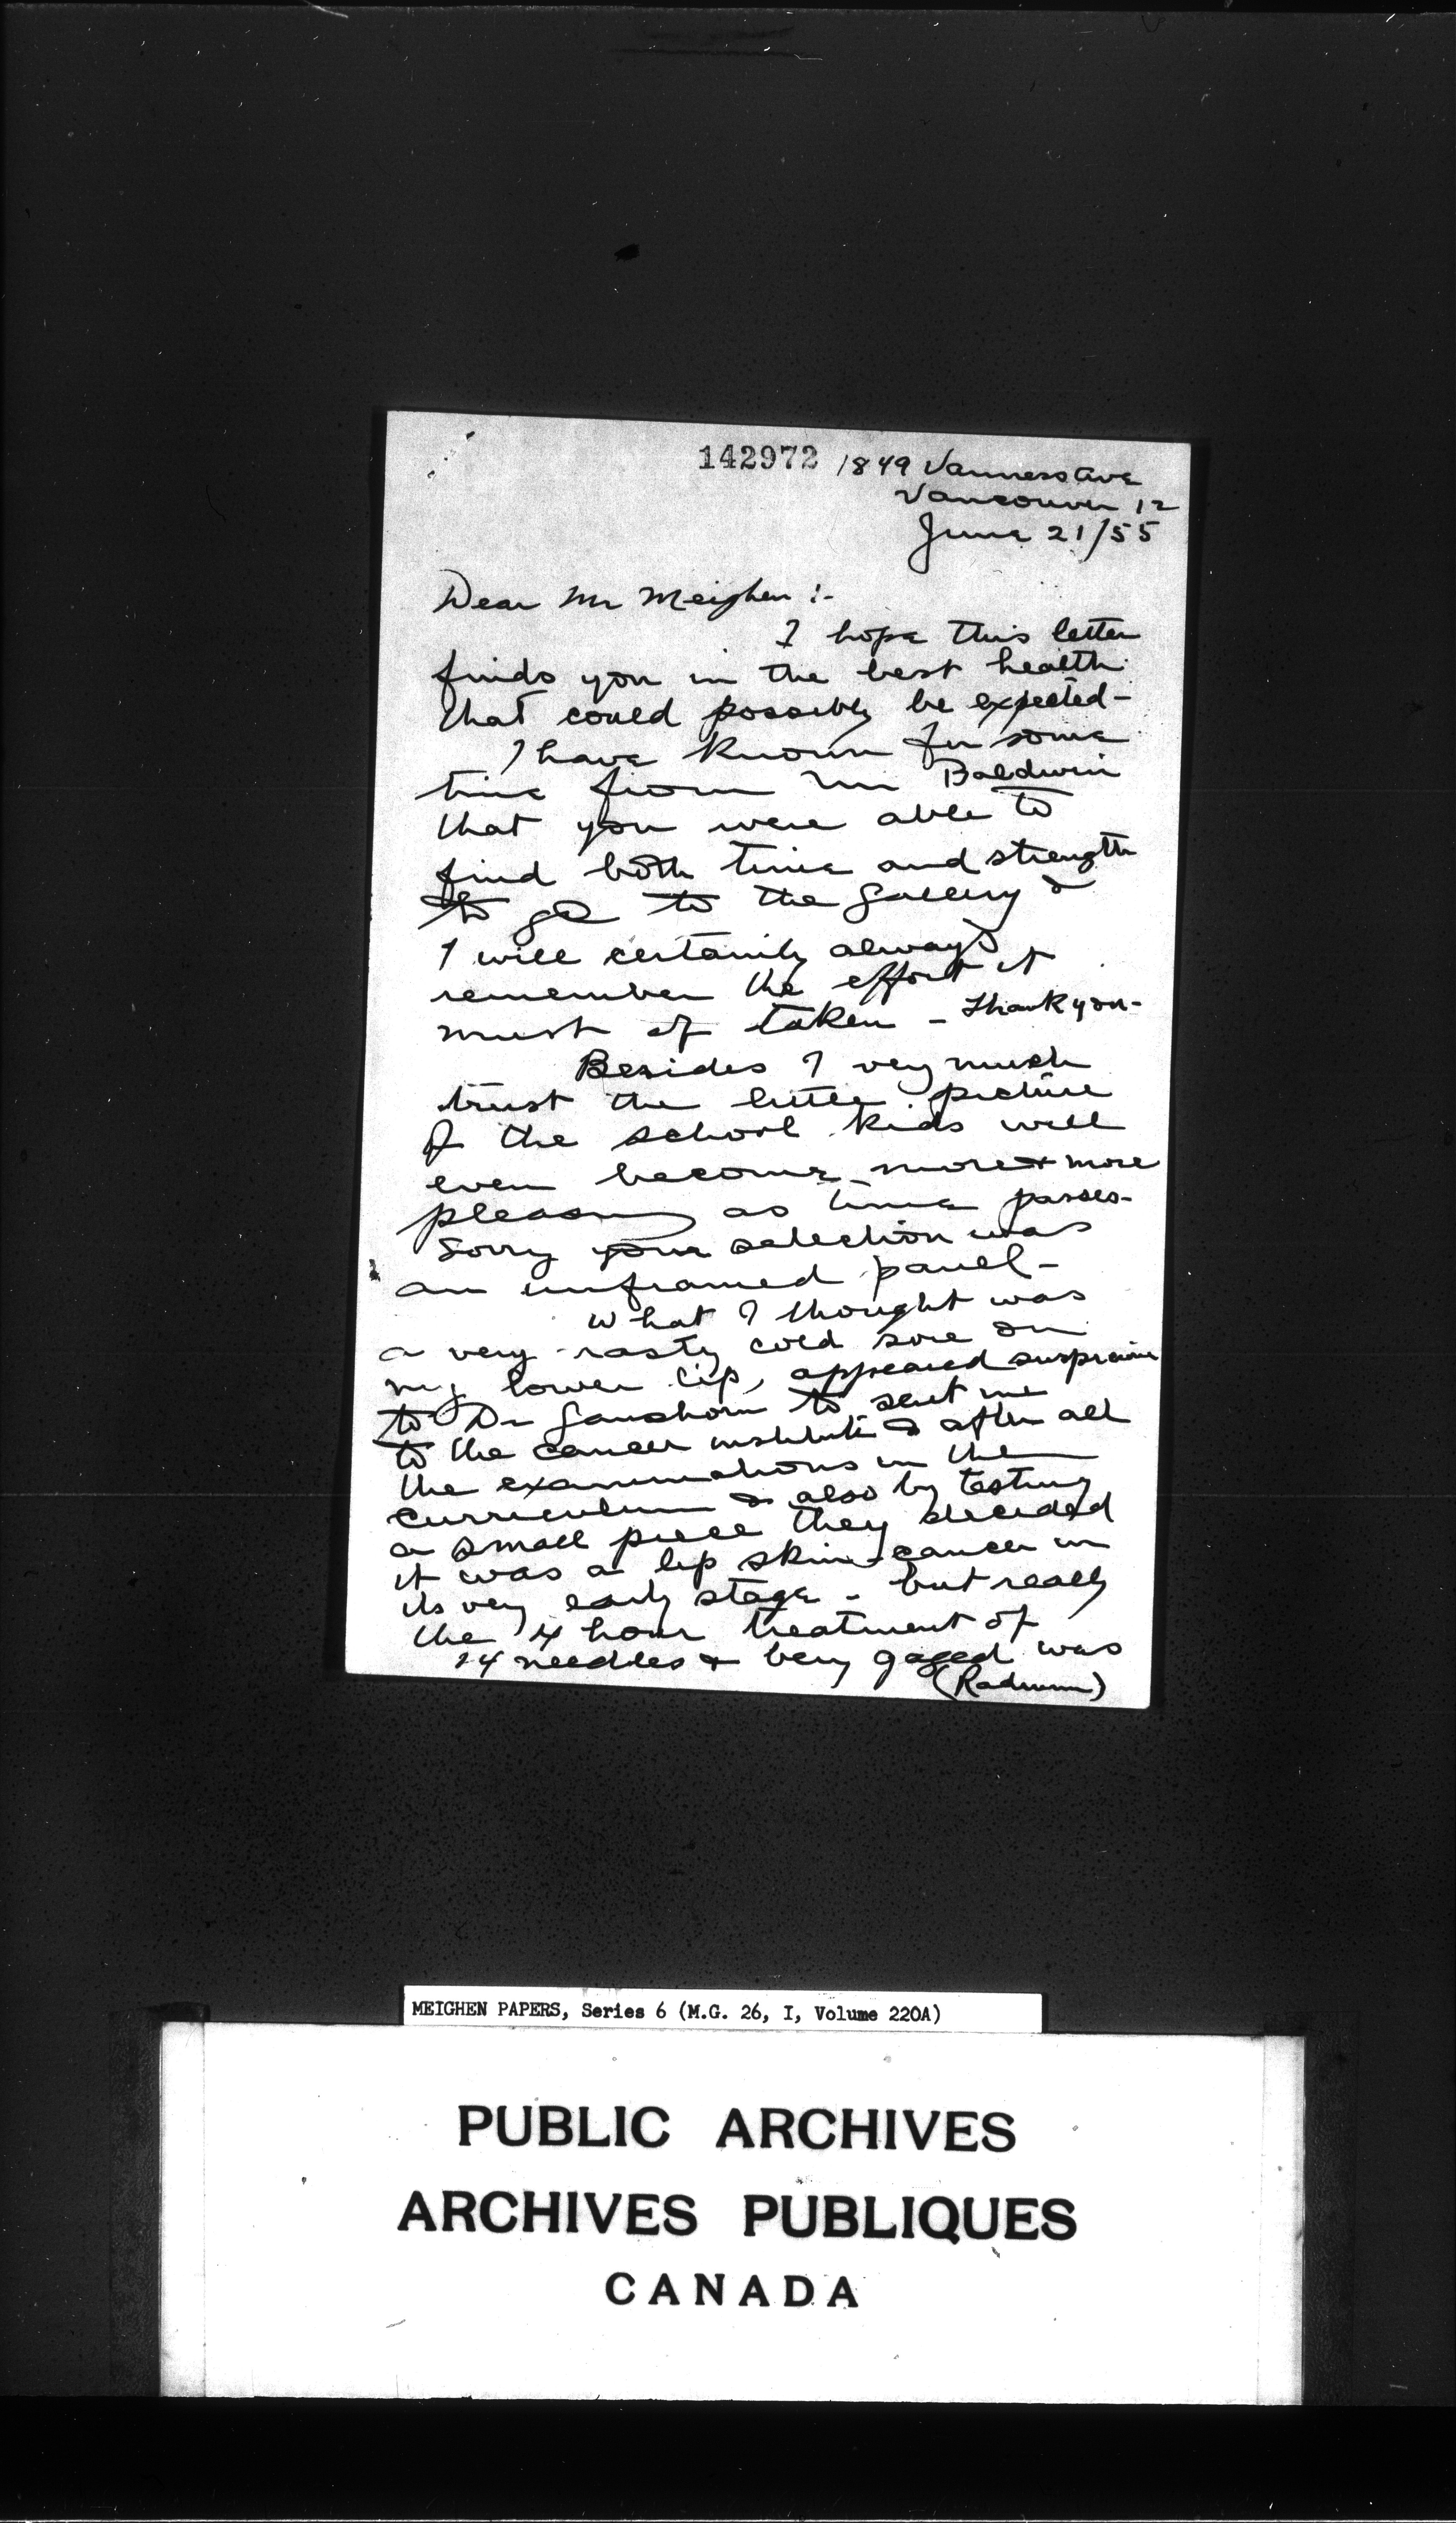 142972 1849 Vanness Ave
Vancouver 12
June 21/55
Dear Mr Meighen :-
I hope this letter
finds you in the best health
that could possibly be expected -
I have known for some
time from Mr Baldwin
that you were able to
find both time and strength
to go to the Gallery &
I will certainly always
remember the effort it
must of taken - Thank you -
Besides I very much
trust the little picture
of the school kids will
even become more & more
pleasing as time passes -
Sorry your selection was
an unframed panel -
What I thought was
a very nasty cold sore on
my lower lip, appeared
to Dr to sent me
to the cancer institute & after all
the examinations in the
curriculum & also by testing
a small piece they decided
it was a lip skin-cancer in
its very early stage - but really
the 4 hour treatment of
14 needles & being gaged was
(Radium)
MEIGHEN PAPERS, Series 6 (M.G. 26, I, Volume 220A)
PUBLIC ARCHIVES
ARCHIVES PUBLIQUES
CANADA